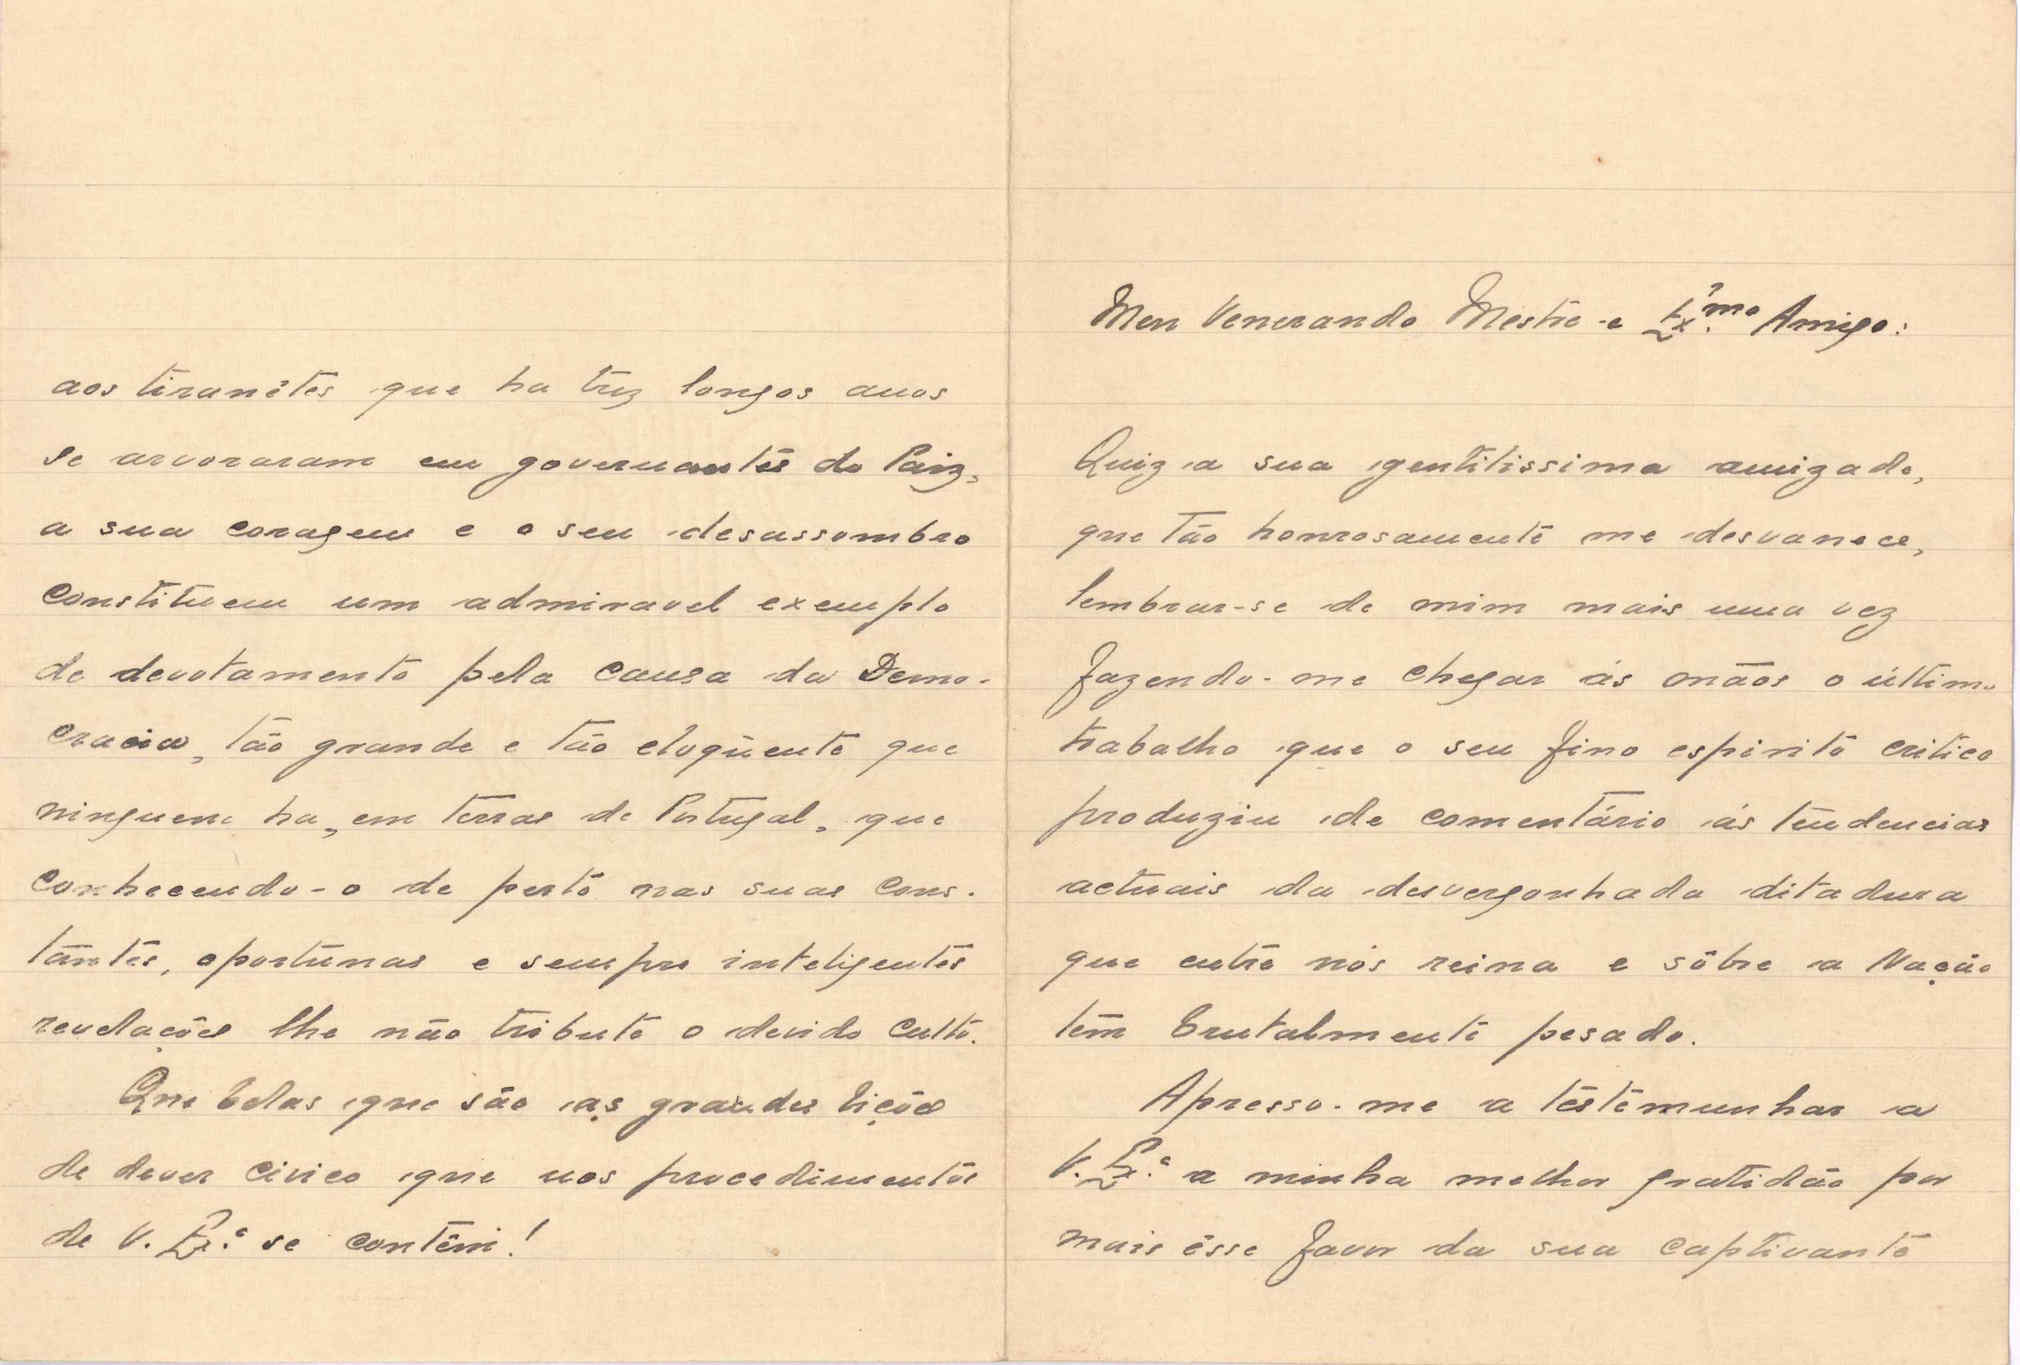 Meu Venerando Mestre e Ex.mo Amigo:
Quiz a sua gentilissima amizade,
que tão honrosamente me desvanece,
lembrar-se de mim mais uma vez
fazendo-me chegar ás mãos o último
trabalho que o seu fino espirito critico
produziu de comentário ás tendencias
actuais da desvergonhada ditadura
que entre nós reina e sôbre a Nação
tem brutalmente pesado.
Apresso-me a testemunhar a
V. Ex.ª a minha melhor gratidão por
mais êsse favor da sua captivante
aos tiranêtes que ha trez longos anos
se arvoraram em governantes do Paiz,
a sua coragem e o seu desassombro
constituem um admiravel exemplo
de devotamento pela causa da Demo-
cracia, tão grande e tão eloqùente que
ninguem ha, em terras de Portugal, que
conhecendo-o de perto nas suas cons-
tantes, oportunas e sempre inteligentes
revelações lhe não tribute o devido culto.
Que belas que são as grandes lições
de dever civico que nos procedimentos
de V. Ex.ª se contêm!